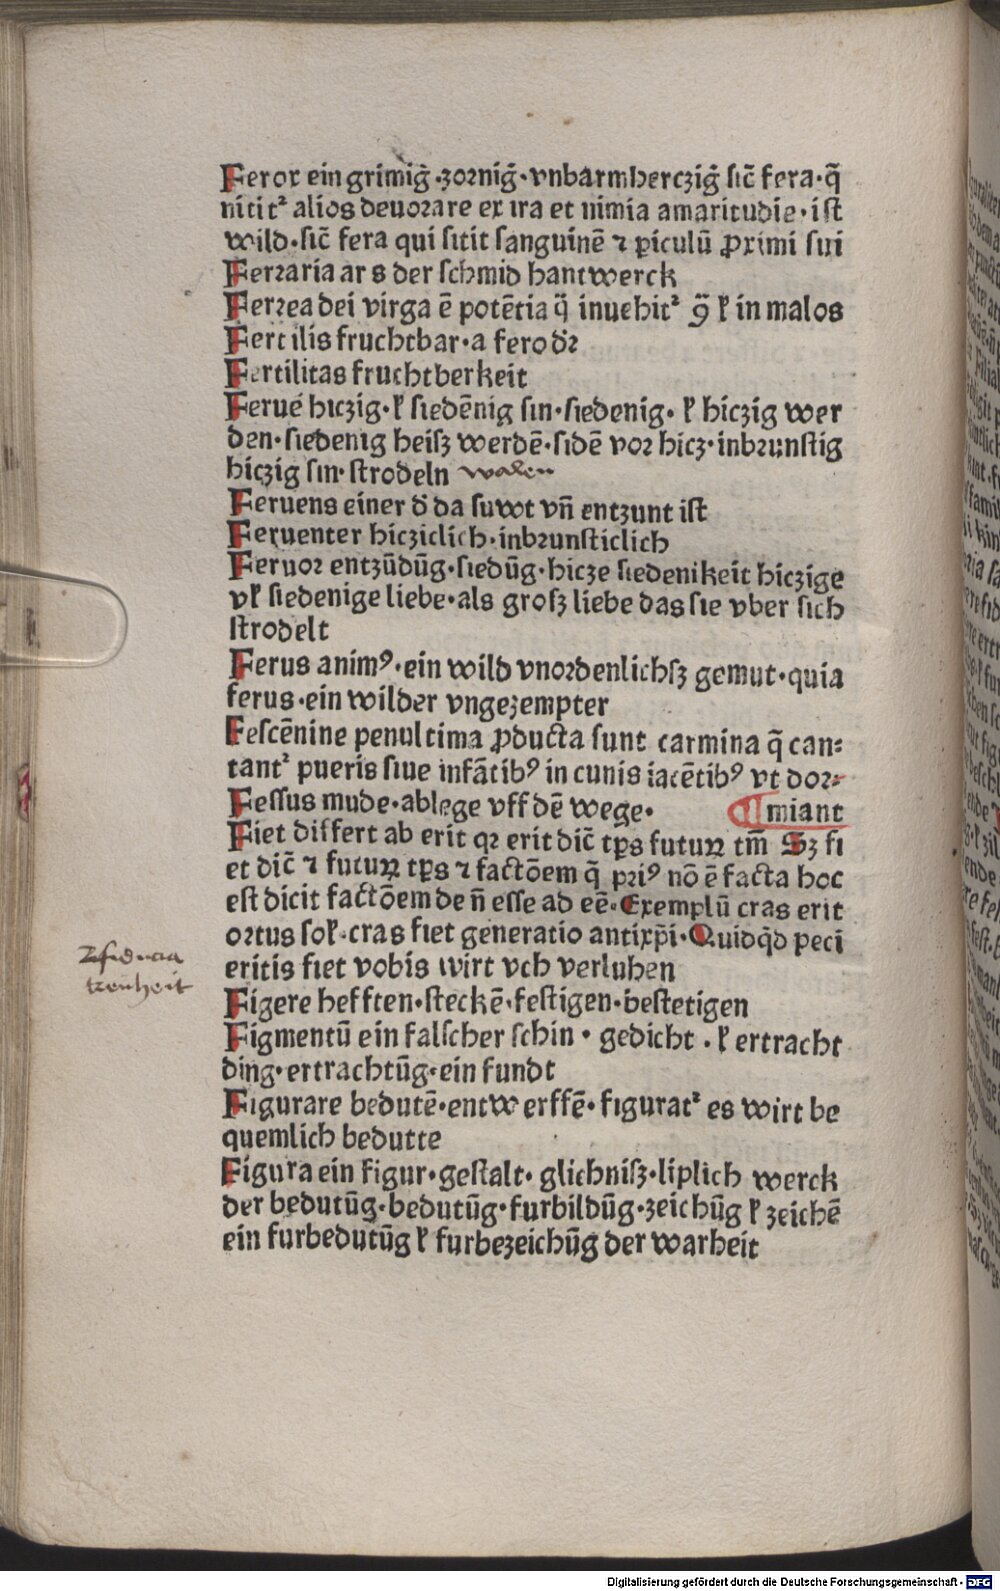 Feror ein grimig̃ ·zornig̃·vnbarmherczig̃ sic̃ fera·q̃
nitit᷑ alios deuorare ex ira et nimia amaritudie·ist
wild·sic̃ fera qui sitit sanguinẽ ⁊ ꝑiculũ ꝓximi sui
Ferraria ars der schmid hantwerck
Ferrea dei virga ẽ potẽtia q̃ inuehit᷑ ꝯ̃ ł in malos
Fertilis fruchtbar·a fero dr̃
Fertilitas fruchtberkeit
Feruẽ hiczig·ł siedẽnig sin·siedenig·ł hiczig wer
den·siedenig heisz werdẽ·sidẽ vor hicz·inbrunstig
hiczig sin·strodeln walen
Feruens einer d̃ da suwt vñ entzunt ist
Feruenter hicziclich·inbrunsticlich
Feruor entzũdũg·siedũg·hicze siedenikeit hiczige
vł siedenige liebe·als grosz liebe das sie vber sich
strodelt
Ferus animꝰ·ein wild vnordenlichsz gemut·quia
ferus·ein wilder vngezempter
Fescẽnine penultima ꝓducta sunt carmina q̃ can⸗
tant᷑ pueris siue infãtibꝰ in cunis iacẽtibꝰ vt dor⸗
Fessus mude·ablege vff dẽ wege· ¶miant
Fiet differt ab erit qꝛ erit dic̃ tꝑs futuꝝ tm̃ Sz fi
et dic̃ ⁊ futuꝝ tꝑs ⁊ factõem q̃ priꝰ nõ ẽ facta hoc
est dicit factõem de ñ esse ad eẽ·Exemplũ cras erit
ortus sol·cras fiet generatio antixp̃i·Quidq̃d peci
eritis fiet vobis wirt vch verluhen
Figere hefften·steckẽ·festigen·bestetigen
Figmentũ ein falscher schin·gedicht·ł ertracht
ding·ertrachtũg·ein fundt
Figurare bedutẽ·entwerffẽ·figurat᷑ es wirt be
quemlich bedutte
Figura ein figur·gestalt·glichnisz·liplich werck
der bedutũg·bedutũg·furbildũg·zeichũg ł zeichẽ
ein furbedutũg ł furbezeichũg der warheit
Digitalisierung gefördert durch die Deutsche Forschungsgemeinschaft · DFG